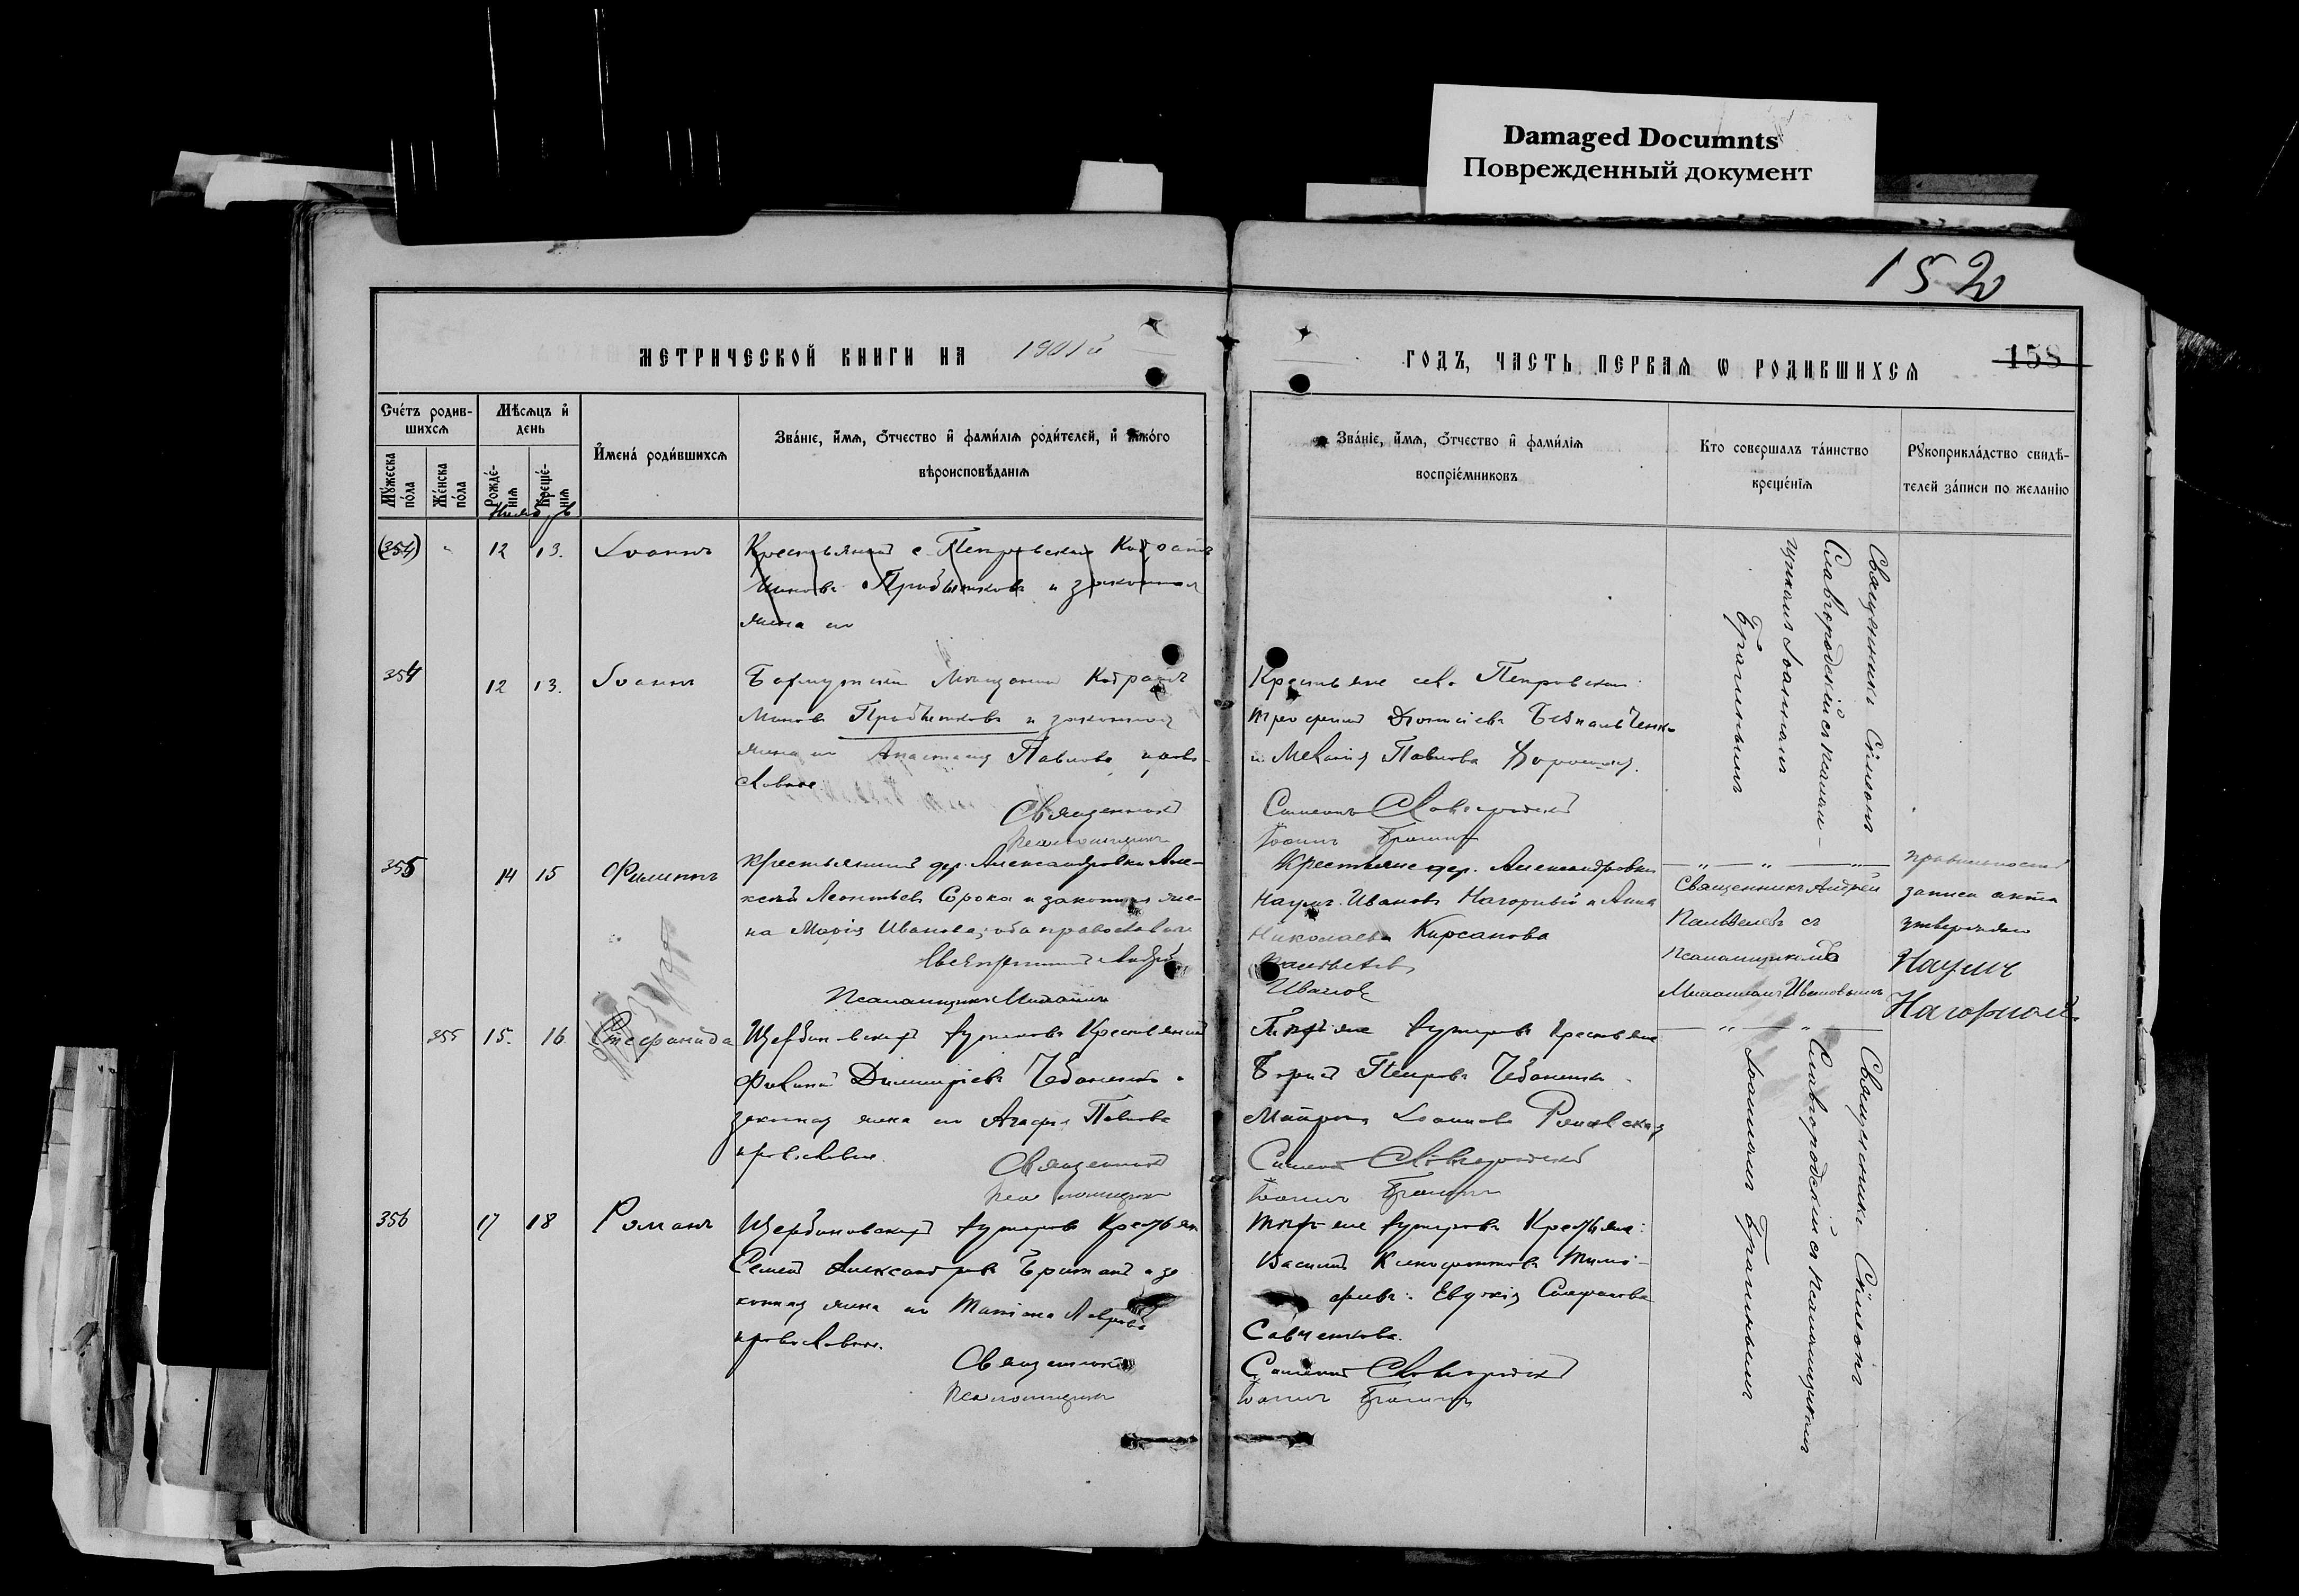 Damaged Documnts
Поврежденный документ
152
МЕТРИЧЕСКОЙ КНИГИ НА 1901й
ГОДЪ, ЧАСТЬ ПЕРВАЯ Ѡ РОДИВШИХСЯ
158
Счётъ родив-
шихся
Мѣсяцъ и
день
Мужеска
пола
Женска
пола
Рожде-
нія
Креще-
нія
Имена родившихся
Званіе, имя, отчество и фамилія родителей, и какого
вѣроисповѣданія
Званіе, имя, отчество и фамилія
воспріемниковъ
Кто совершалъ таинство
крещенія
Рукоприкладство свидѣ-
телей записи по желанію
(354) 12 13. Іоаннъ
Крестьянинъ с. Петровскаго Кодратъ
Миновъ Прибытковъ и законная
жена его
354 12 13. Іоаннъ
Бахмутскій Мещанинъ Кодратъ
Миновъ Прибытковъ и законная
жена его Анастасія Павлова, право-
славные
Священникъ
Псаломщикъ
Крестьяне села Петровскаго:
Трофимъ Діонисіевъ
и Меланія Павлова
Симеонъ Славгородскій
Іоаннъ Брагинъ
Священникъ Сімеонъ
Славгородскій съ псалом-
щикомъ Іоанномъ
Брагинымъ
355 14 15 Филиппъ
Крестьянинъ дер. Александровки Але-
ксѣй Леонтьевъ Сорока и законная же-
на Марія Иванова, оба православные
Священникъ Андрей
Псаломщикъ Михаилъ
Крестьяне дер. Александровки
Наумъ Ивановъ Нагорный и Анна
Николаева Кирсанова
Ивановъ
Священникъ Андрей
съ
псаломщикомъ
Михаиломъ Ивановымъ
правильность
записи акта
утверждаю
Наумъ
Нагорной
355 15. 16 Стефанида
Щербиновскихъ хуторовъ Крестьянинъ
Димитріевъ Чебаненко и
законная жена его Агафія Павлова
православные.
Священникъ
Псаломщикъ
Тѣхъ-же хуторовъ Крестьяне
Петровъ Чебаненко
Матрона Іоаннова
Симеонъ Славгородскій
Іоаннъ Брагинъ
Священникъ Сімеонъ
Славгородскій съ псаломщикомъ
Іоанномъ Брагинымъ
356 17 18 Романъ
Щербиновскихъ хуторовъ Крестьян
Семенъ Александровъ и за
конная жена его Татіана
православные.
Священникъ
Псаломщикъ
Тѣхъ-же хуторовъ Крестьяне:
Василій Ксенофонтовъ Тимо-
феевъ: Евдокія Стефанова
Савченкова.
Симеонъ Славгородскій
Іоаннъ Брагинъ